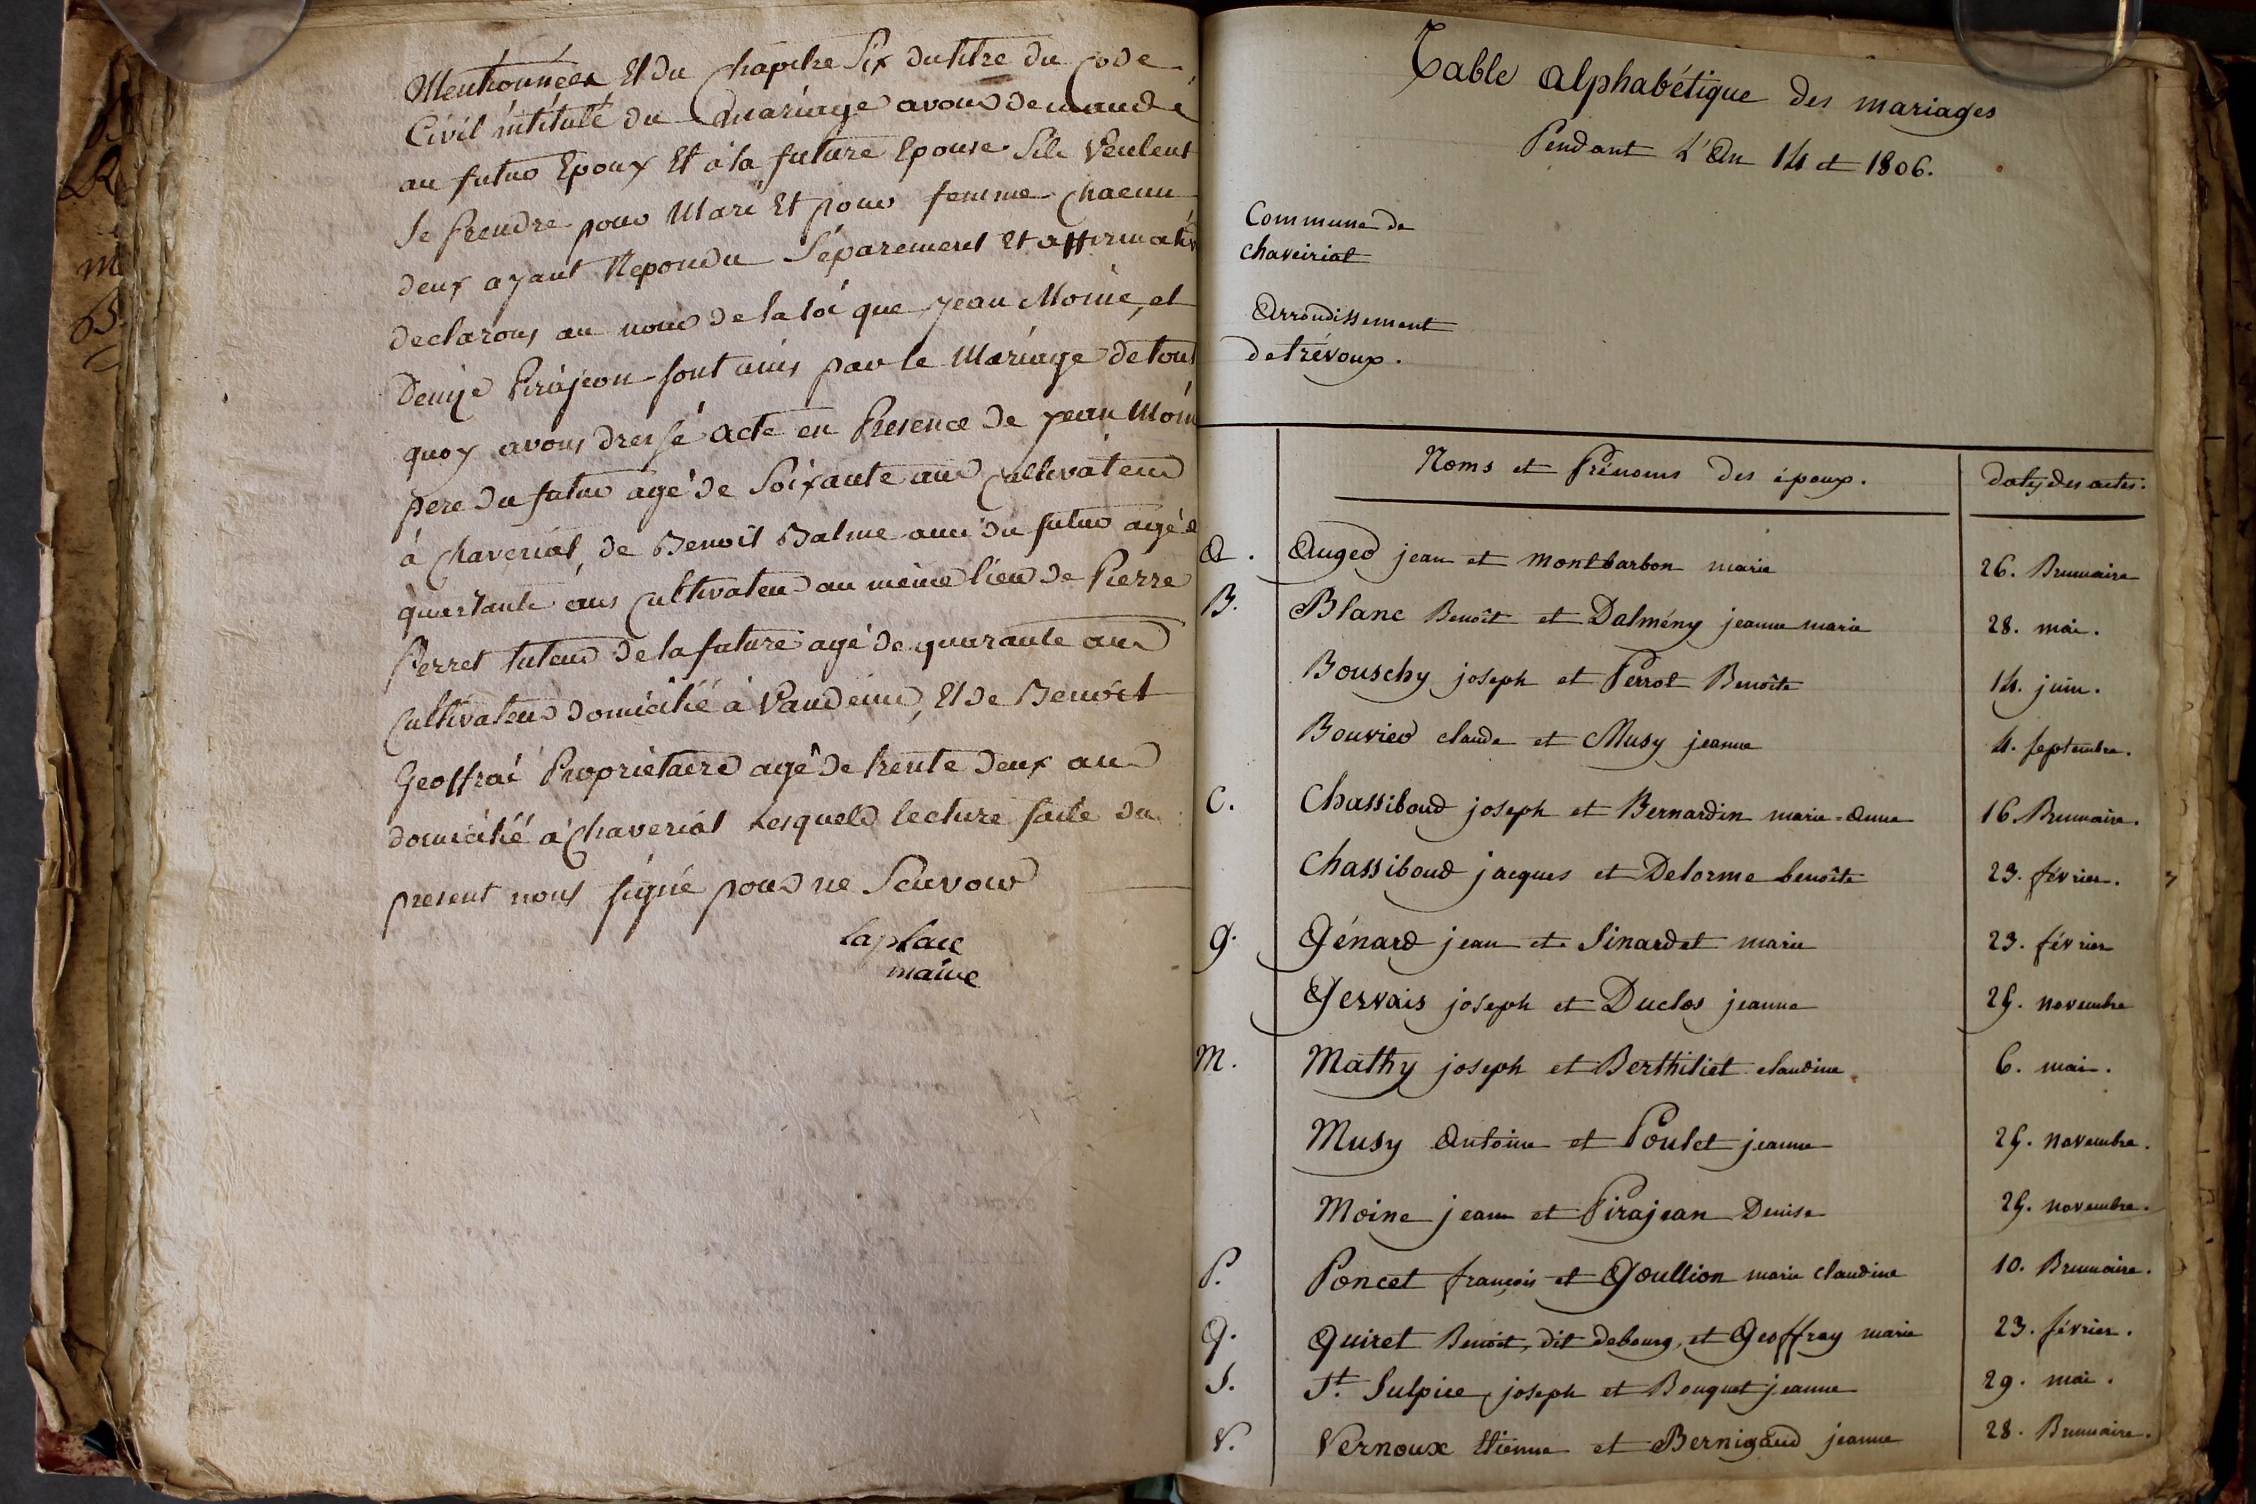 Mentionnées Et du Chapitre Six du titre du Code
Civil intitulé du Mariage avons demandé
au futur Epoux Et à la future Epouse S'ils Veulent
Se Prendre pour Mari Et pour femme Chacun
deux ayant Repondu Séparement Et affirmativ
declarons au nom de la loi que jean Moine, et
Denise Pirajean sont unis par le Mariage de tout
quoy avons dressé acte en Presence de jean Moin
pere du futur agé de Soixante ans Cultivateur
à Chaveriat, de Benoit Balme ami du futur agé d
quarante ans Cultivateur au même lieu de Pierre
Perret tuteur de la future agé de quarante ans
Cultivateur domicilié à Vandeins, Et de Benoit
Geoffrai Proprietaire agé de trente deux ans
domicilié à Chaveriat Lesquels lecture faite du
present nont signé pour ne Scavoir
laplace
maire
Table Alphabétique des mariages
Pendant L'An 14 et 1806.
Commune de
chaveiriat
Arrondissement
de trévoux.
Noms et Prénoms des époux.
dates des actes.
A. Auger jean et Montbarbon marie 26. Brumaire
B. Blanc Benoît et Dalmény jeanne marie 28. mai.
Bouschy joseph et Perrot Benoîte 14. juin.
Bouvier claude et Musy jeanne 4. septembre.
C. Chassiboud joseph et Bernardin marie-Anne 16. Brumaire.
Chassiboud jacques et Delorme benoîte 23. février.
G. Génard jean et Sinardet marie 23. février
Gervais joseph et Duclos jeanne 25. novembre
M. Mathy joseph et Berthiliet claudine 6. mai.
Musy Antoine et Poulet jeanne 25. novembre.
Moine jean et Pirajean Denise 25. novembre.
P. Poncet françois et Goullion marie claudine 10. Brumaire.
Q. Quiret Benoit, dit debourg, et Geoffray marie 23. février.
S. St. Sulpice joseph et Bouquet jeanne 29. mai.
V. Vernoux Etienne et Bernigaud jeanne 28. Brumaire.